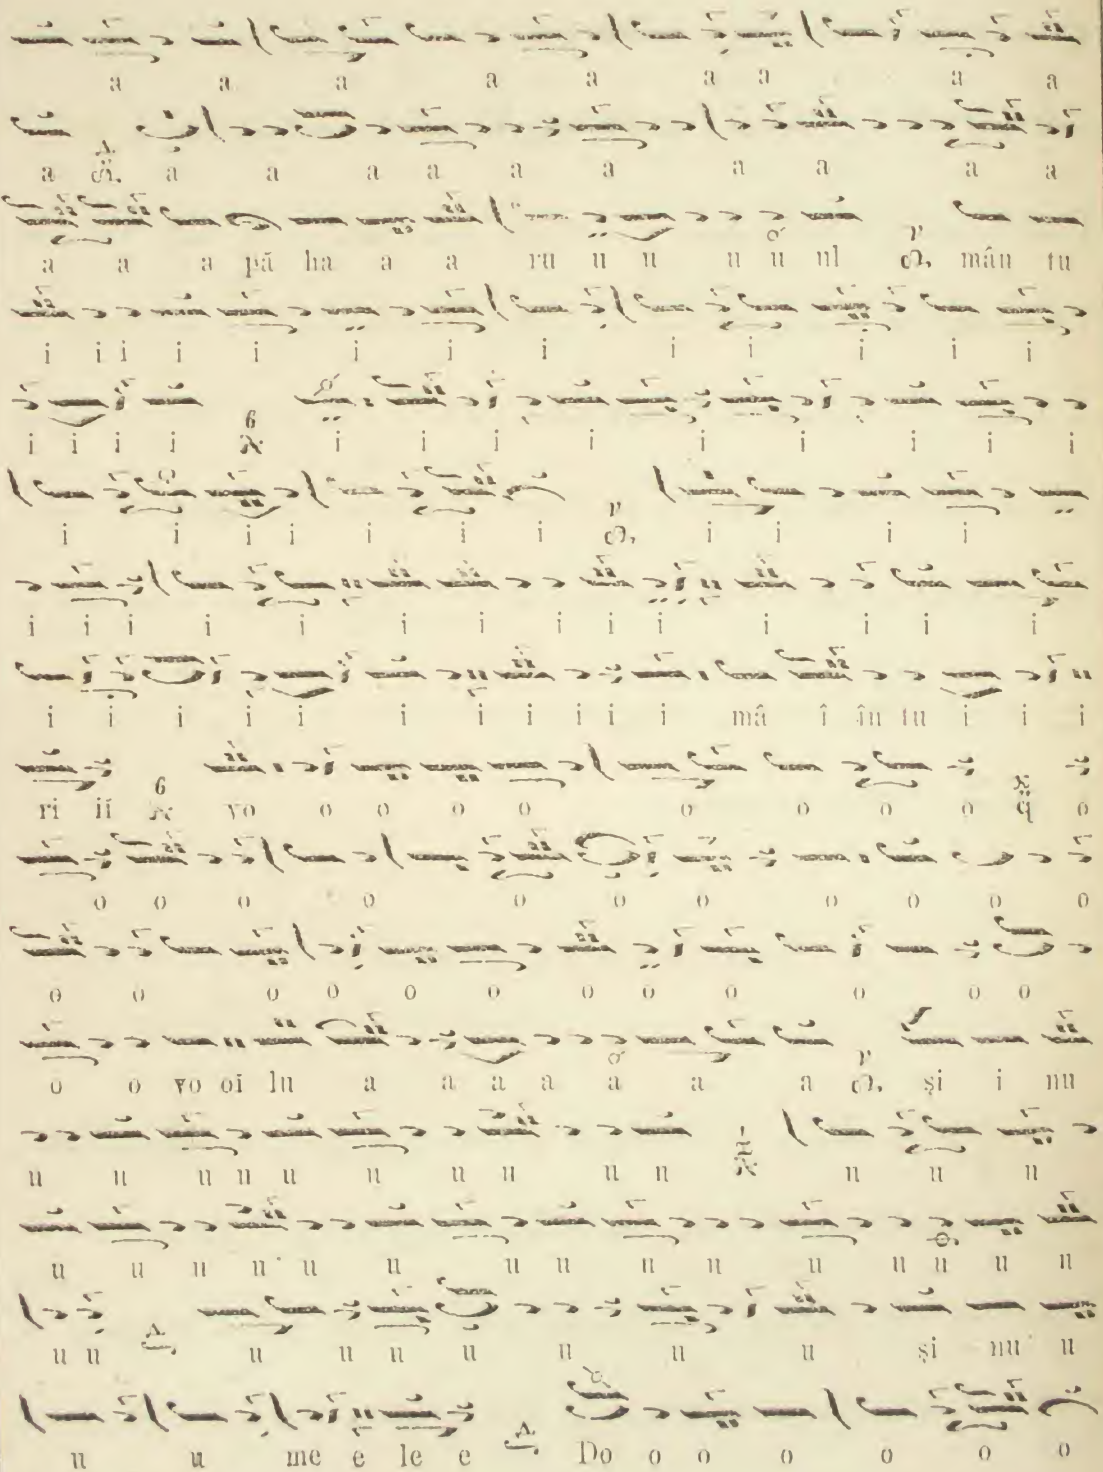 a a a a a a a a a
a a a a a a a a a a a
a a a pă ha a a ru u u u u ul mân tu
i i i i i i i i i i i i i
i i i i i i i i i i i i i
i i i i i i i i i i i
i i i i i i i i i i i i i
i i i i i i i i i i i mâ î în tu i i i
ri ii vo o o o o o o o o o
o o o o o o o o o o o
o o o o o o o o o o o o
o o vo oi lu a a a a a a a și i nu
u u u u u u u u u u u u u
u u u u u u u u u u u u u u u
u u u u u u u u u și nu u
u u me e le e Do o o o o o o